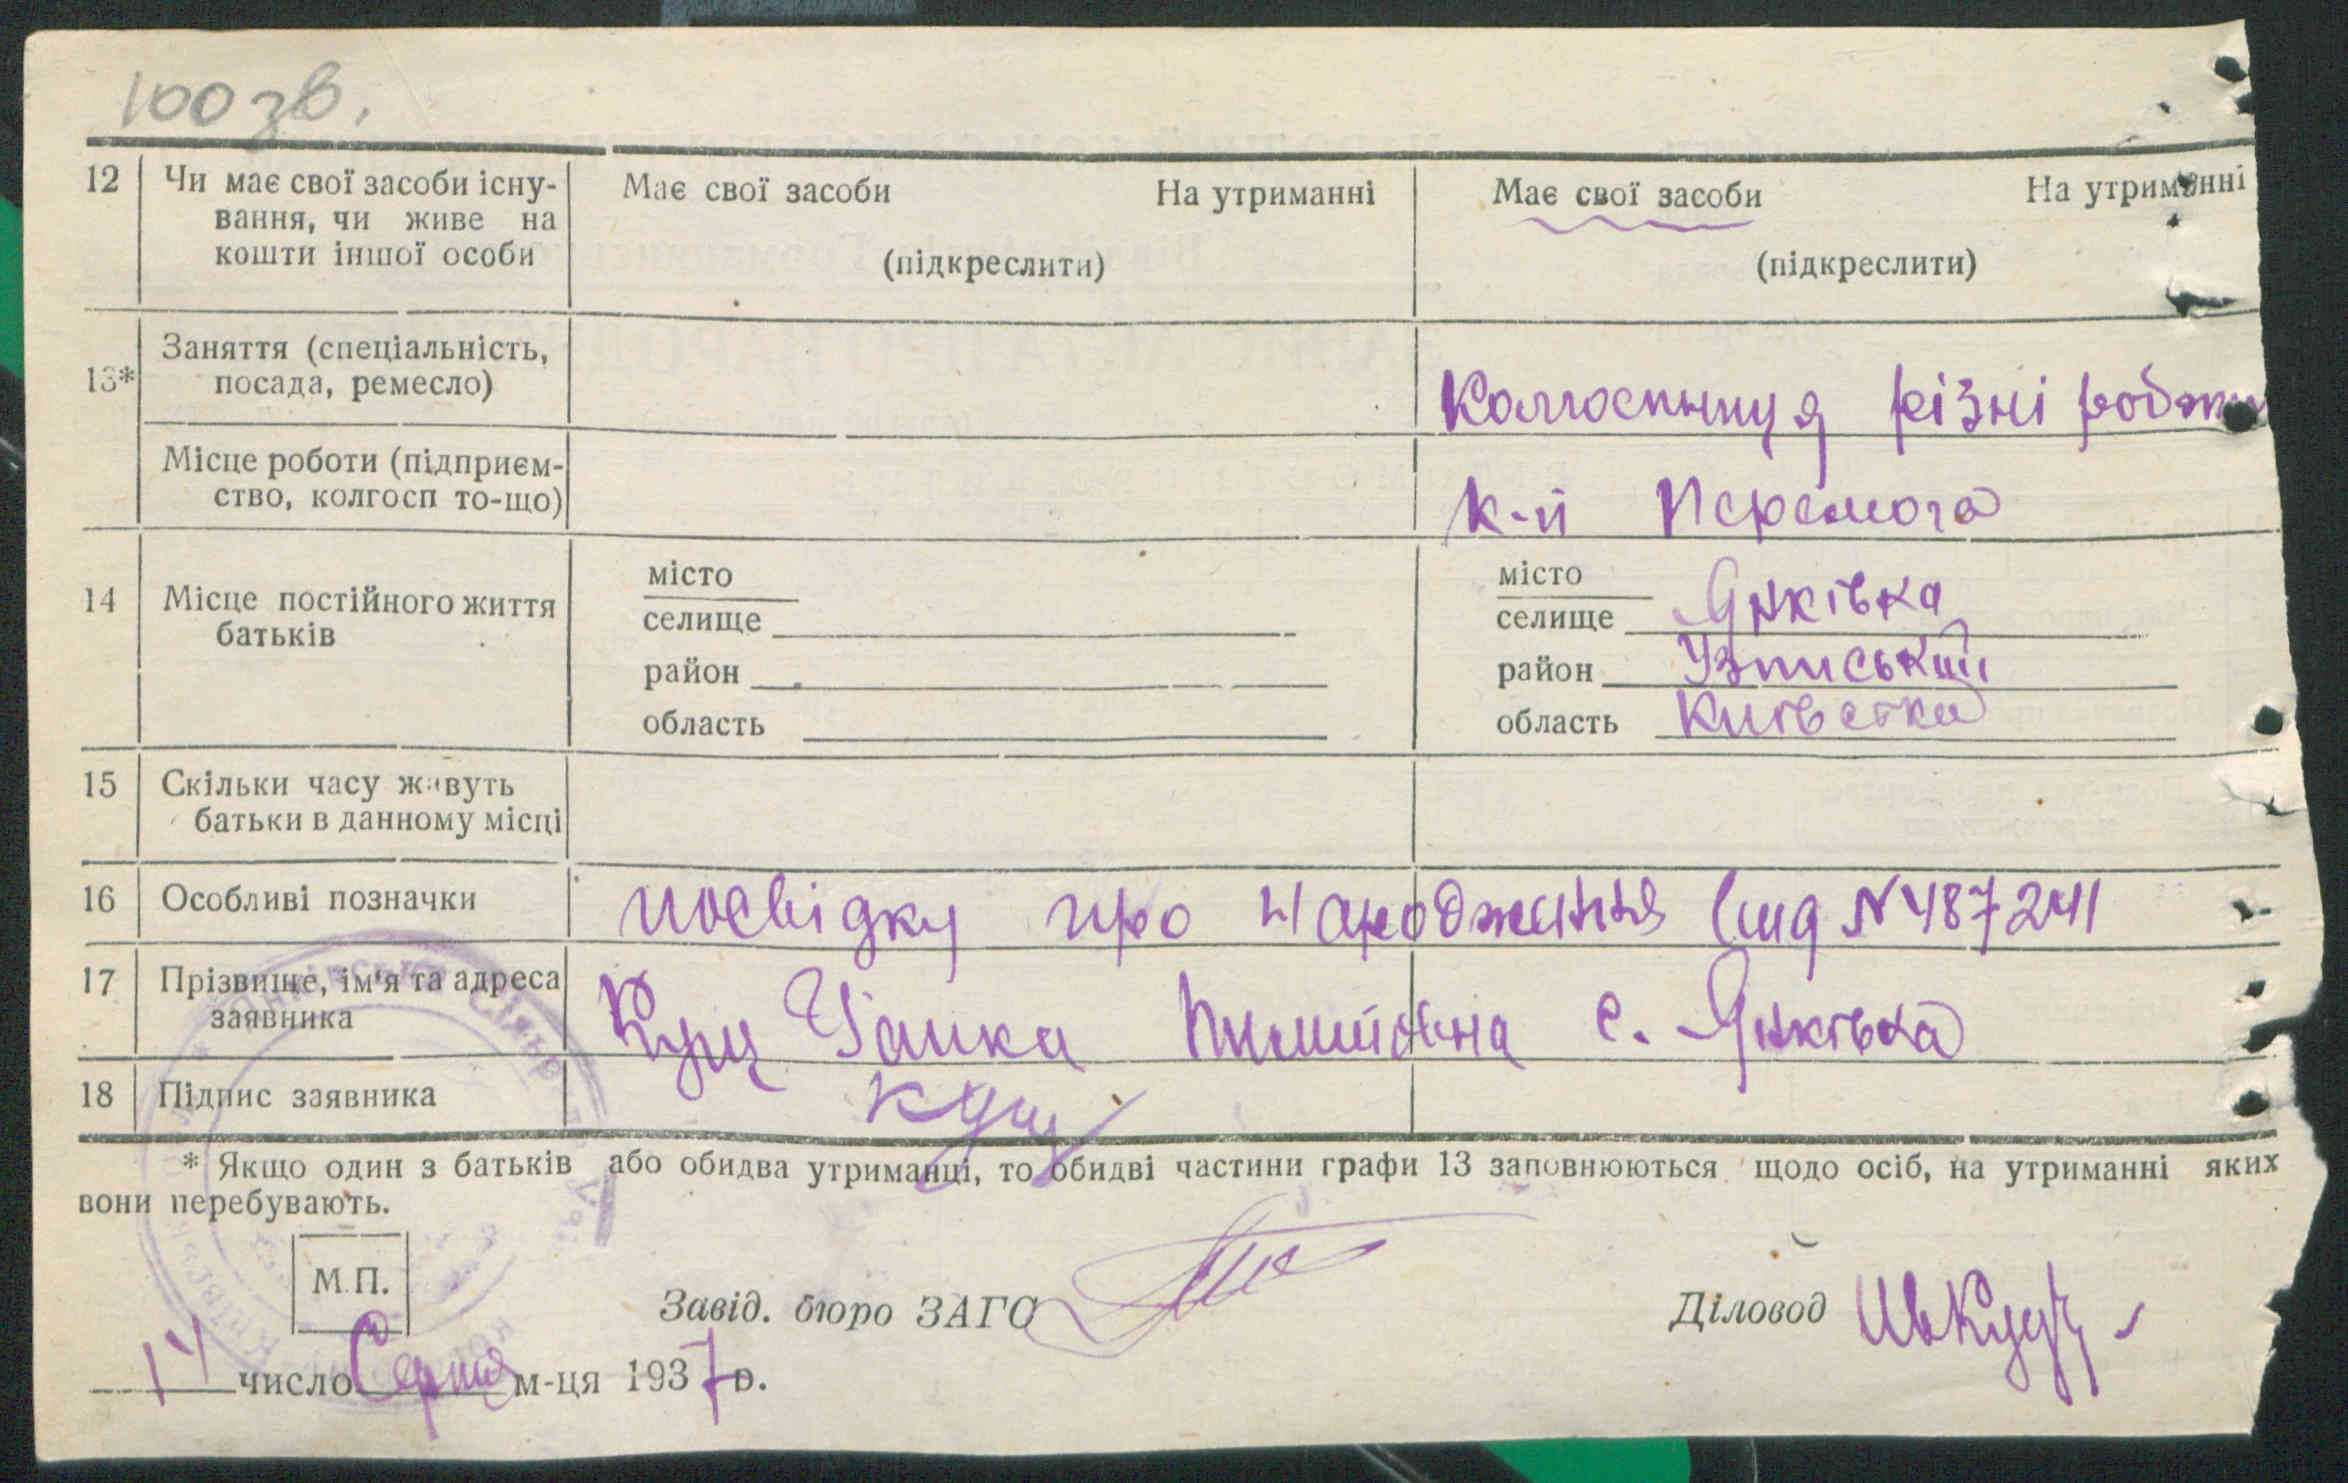 100 зв.
12 Чи має свої засоби існу- Має свої засоби На утриманні Має свої засоби На утриманні
вання, чи живе на
кошти іншої особи (підкреслити) (підкреслити)
13* Заняття (спеціальність,
посада, ремесло) Колгоспниця різні роботи
Місце роботи (підприєм-
ство, колгосп то-що) к-п Перемога
14 Місце постійного життя
батьків
місто місто
селище селище Янківка
район район
область область Київська
15 Скільки часу живуть
батьки в данному місці
16 Особливі позначки посвідку про народження вид N 487241
17 Прізвище, ім'я та адреса
заявника Куц Ганка с. Янківка
18 Підпис заявника Куц
* Якщо один з батьків або обидва утриманці, то обидві частини графи 13 заповнюються щодо осіб, на утриманні яких
вони перебувають.
М.П.
Завід. бюро ЗАГС Діловод
14 число Серпня м-ця 1937 р.